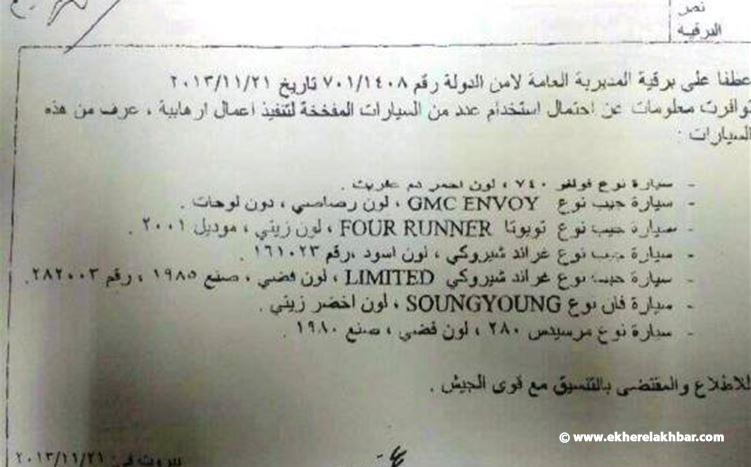 نص
البرقية
عطفا على برقية المديرية العامة لامن الدولة رقم ٧٠١/١٤٠٨ تاريخ ٢٠١٣/١١/٢١
توافرت معلومات عن احتمال استخدام عدد من السيارات المفخخة لتنفيذ اعمال ارهابية ، عرف من هذه
السيارات :
- سيارة نوع فولفو ٧٤٠ ، لون احمر دم عفريت .
- سيارة جيب نوع GMC ENVOY ، لون رصاصي ، دون لوحات .
- سيارة جيب نوع تويوتا FOUR RUNNER ، لون زيتي ، موديل ٢٠٠١ .
- سيارة جيب نوع غراند شيروكي ، لون اسود ،رقم ١٦١٠٢٣ .
- سيارة جيب نوع غراند شيروكي LIMITED ، لون فضي ، صنع ١٩٨٥ ، رقم ٢٨٢٠٠٣ .
- سيارة فان نوع SOUNGYOUNG ، لون اخضر زيتي .
- سيارة نوع مرسيدس ٢٨٠ ، لون فضي ، صنع ١٩٨٠ .
للاطلاع والمقتضى بالتنسيق مع قوى الجيش .
© www.ekherelakhbar.com
بيروت في ٢٠١٣/١١/٢١